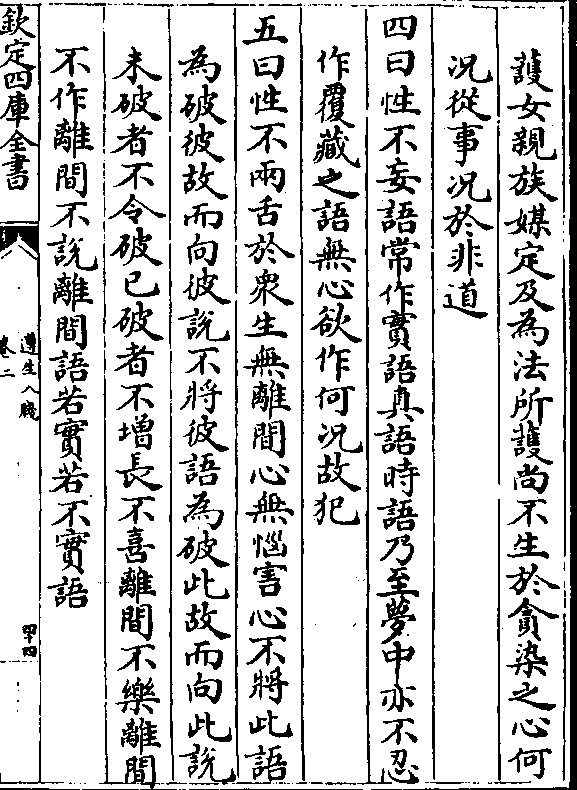 護女親族媒定及為法所護尚不生於貪染之心何
況從事況於非道
四曰性不妄語常作實語真語時語乃至夢中亦不忍
作覆藏之語無心欲作何況故犯
五曰性不兩舌於衆生無離間心無惱害心不將此語
為破彼故而向彼說不將彼語為破此故而向此說
未破者不令破已破者不增長不喜離間不樂離間
不作離間不說離間語若實若不實語
欽定四庫全書
遵生八牋
卷二
四十四